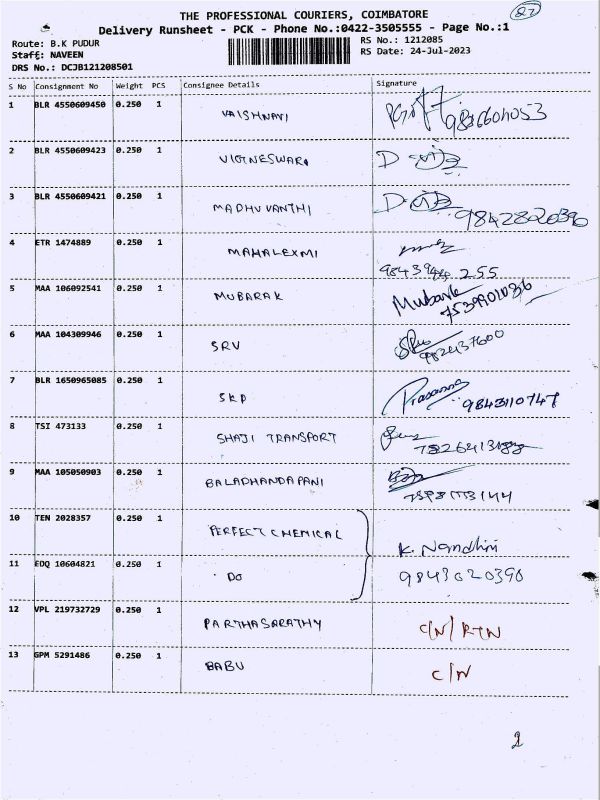 THE PROFESSIONAL COURIERS, COIMBATORE
27
Delivery Runsheet - PCK - Phone No.:0422-3505555 - Page No.:1
Route: B.K PUDUR
RS No.: 1212085
Staff: NAVEEN
RS Date: 24-Jul-2023
DRS No.: DCJB121208501
S No Consignment No Weight PCS Consignee Details Signature
1 BLR 4550609450 0.250 1 VAISHNAVI
2 BLR 4550609423 0.250 1 VIGNESWARI
3 BLR 4550609421 0.250 1 MADHUVANTHI 9842820390
4 ETR 1474889 0.250 1 MAHALEXMI
5 MAA 106092541 0.250 1 MUBARAK Mubarak
7539901036
6 MAA 104309946 0.250 1 SRV
7 BLR 1650965085 0.250 1 SKP Prasanna 9843110747
8 TSI 473133 0.250 1 SHAJI TRANSPORT
9 MAA 105050903 0.250 1 BALADHANDAPANI
10 TEN 2028357 0.250 1 PERFECT CHEMICAL K. Nandhini
11 EDQ 10604821 0.250 1 DO 9843020390
12 VPL 219732729 0.250 1 PARTHASARATHY C/N/ RTN
13 GPM 5291486 0.250 1 BABU C/N